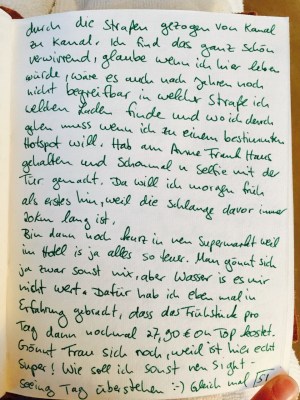 durch die Straßen gezogen von Kanal
zu Kanal. Ich find das ganz schön
verwirrend, glaube wenn ich hier leben
würde, wäre es auch nach Jahren noch
nicht begreifbar in welcher Straße ich
welchen Laden finde und wo ich durch
gehen muss wenn ich zu einem bestimmten
Hotspot will. Hab am Anne Frank Haus
gehalten und schonmal n Selfie mit der
Tür gemacht. Da will ich morgen früh
als erstes hin, weil die Schlange davor immer
20km lang ist.
Bin dann noch kurz in nen Supermarkt weil
im Hotel is ja alles so teuer. Man gönnt sich
ja zwar sonst nix, aber Wasser is es mir
nicht wert. Dafür hab ich eben mal in
Erfahrung gebracht, dass das Frühstück pro
Tag dann nochmal 27,90€ on Top kostet.
Gönnt Frau sich noch, weil ist hier echt
super! Wie soll ich sonst nen Sight-
seeing Tag überstehen :-) Gleich mal